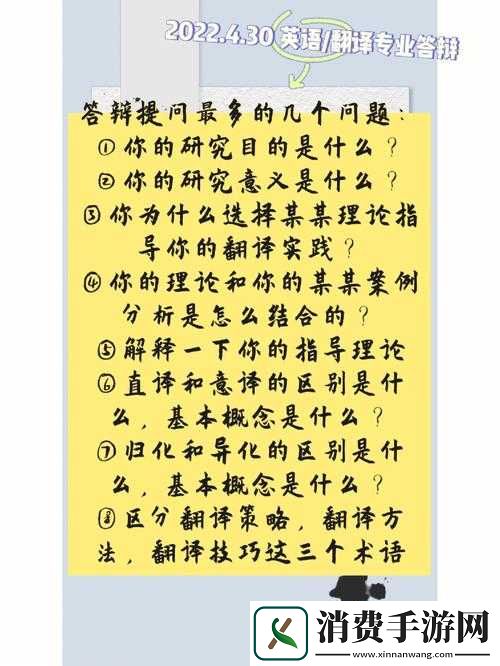 2022.4.30 英语/翻译专业答辩
答辩提问最多的几个问题：
①你的研究目的是什么？
②你的研究意义是什么？
③你为什么选择某某理论指
导你的翻译实践？
④你的理论和你的某某案例
分析是怎么结合的？
⑤解释一下你的指导理论
⑥直译和意译的区别是什
么，基本概念是什么？
⑦归化和异化的区别是什
么，基本概念是什么？
⑧区分翻译策略，翻译方
法，翻译技巧这三个术语
消费手游网
www.xinnanwang.com